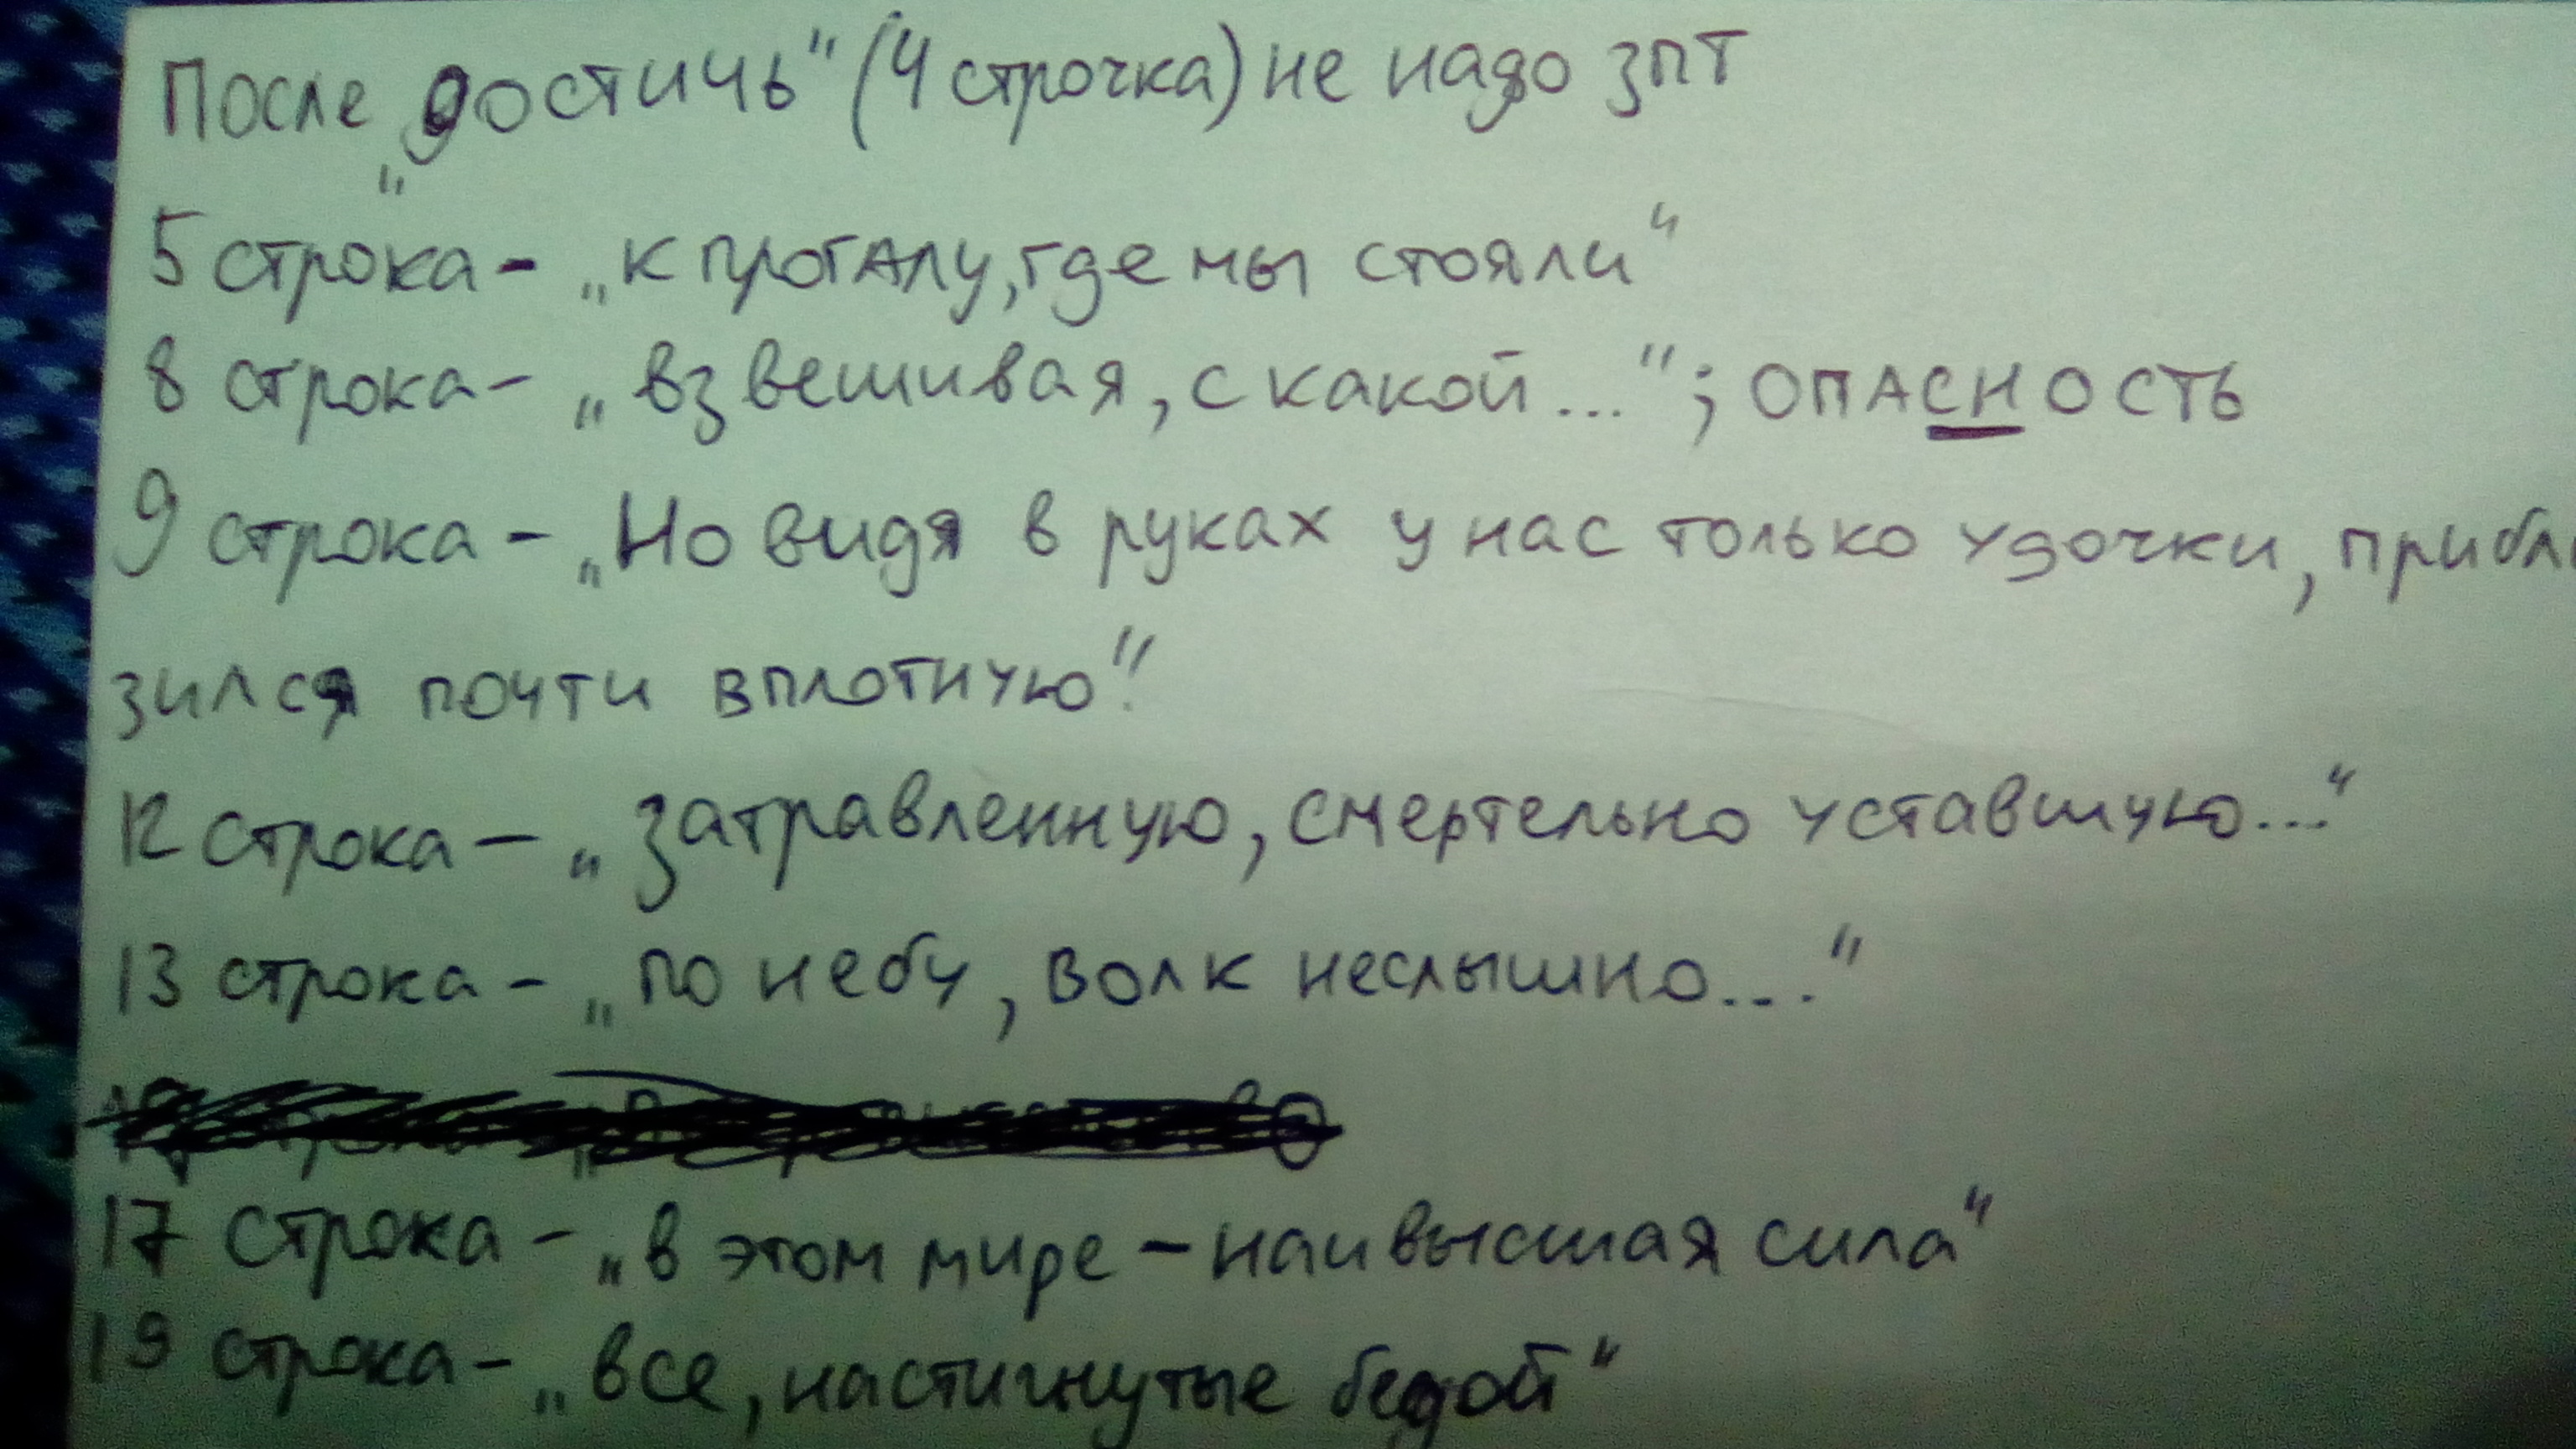 После „достичь" (4 строчка) не надо зпт
5 строка - „к прогалу, где мы стояли"
8 строка - „взвешивая, с какой..."; опасность
9 строка - „Но видя в руках у нас только удочки, прибли
зился почти вплотную".
12 строка - „затравленную, смертельно уставшую..."
13 строка - „по небу, волк неслышно..."
17 строка - „в этом мире - наивысшая сила"
19 строка - „все, настигнутые бедой"